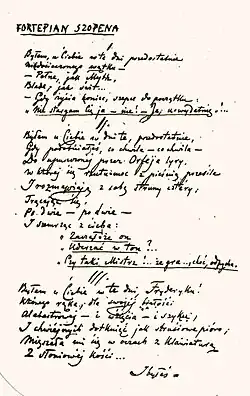 FORTEPIAN SZOPENA
I
Byłem u Ciebie w te dni przedostatnie
Niedocieczonego wątku —
— Pełne, jak Myth,
Blade, jak świt...
— Gdy życia koniec, szepce do początku:
„Nie stargam Cię ja — nie! — Ja, uwydatnię!...
II.
Byłem u Ciebie w dni te, przedostatnie,
Gdy podobniałeś, co chwila — co chwila —
Do upuszczonej przez Orfeja lyry,
W której się rzutu-moc z pieśnią przesila
I rozmawiają z sobą struny cztery,
Trącając się,
Po dwie — po dwie —
I szemrząc z cicha:
„Zacząłże on
„Uderzać w ton?...
„Czy taki Mistrz!... że gra... choć, odpycha...
III.
Byłem u Ciebie w te dni, Fryderyku!
Którego ręka, dla swojej białości
Alabastrowej — i wzięcia — i szyku,
I chwiejnych dotknięć jak strusiowe pióro,
Mięszała mi się w oczach z klawiaturą
Z słoniowej kości...
I byłeś —